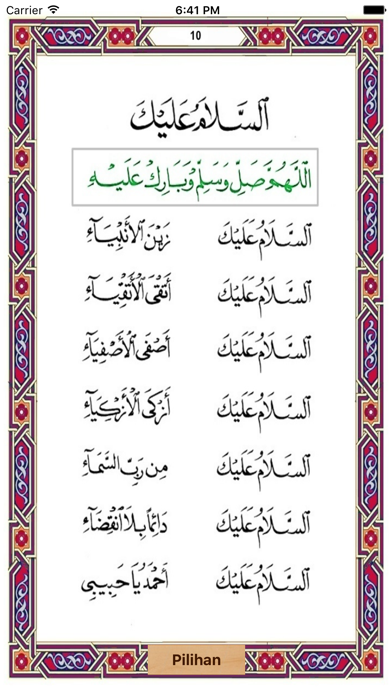 Carrier 6:41 PM
10
اَلسَّلَامُ عَلَيْكَ
اَللّٰهُمَّ صَلِّ وَسَلِّمْ وَبَارِكْ عَلَيْهِ
اَلسَّلَامُ عَلَيْكَ زَيْنَ الْأَنْبِيَآءِ
اَلسَّلَامُ عَلَيْكَ أَتْقَى الْأَتْقِيَآءِ
اَلسَّلَامُ عَلَيْكَ أَصْفَى الْأَصْفِيَآءِ
اَلسَّلَامُ عَلَيْكَ أَزْكَى الْأَزْكِيَآءِ
اَلسَّلَامُ عَلَيْكَ مِن رَّبِّ السَّمَآءِ
اَلسَّلَامُ عَلَيْكَ دَائِمًا بِلَا انْقِضَآءِ
اَلسَّلَامُ عَلَيْكَ أَحْمَدُ يَا حَبِيبِي
Pilihan